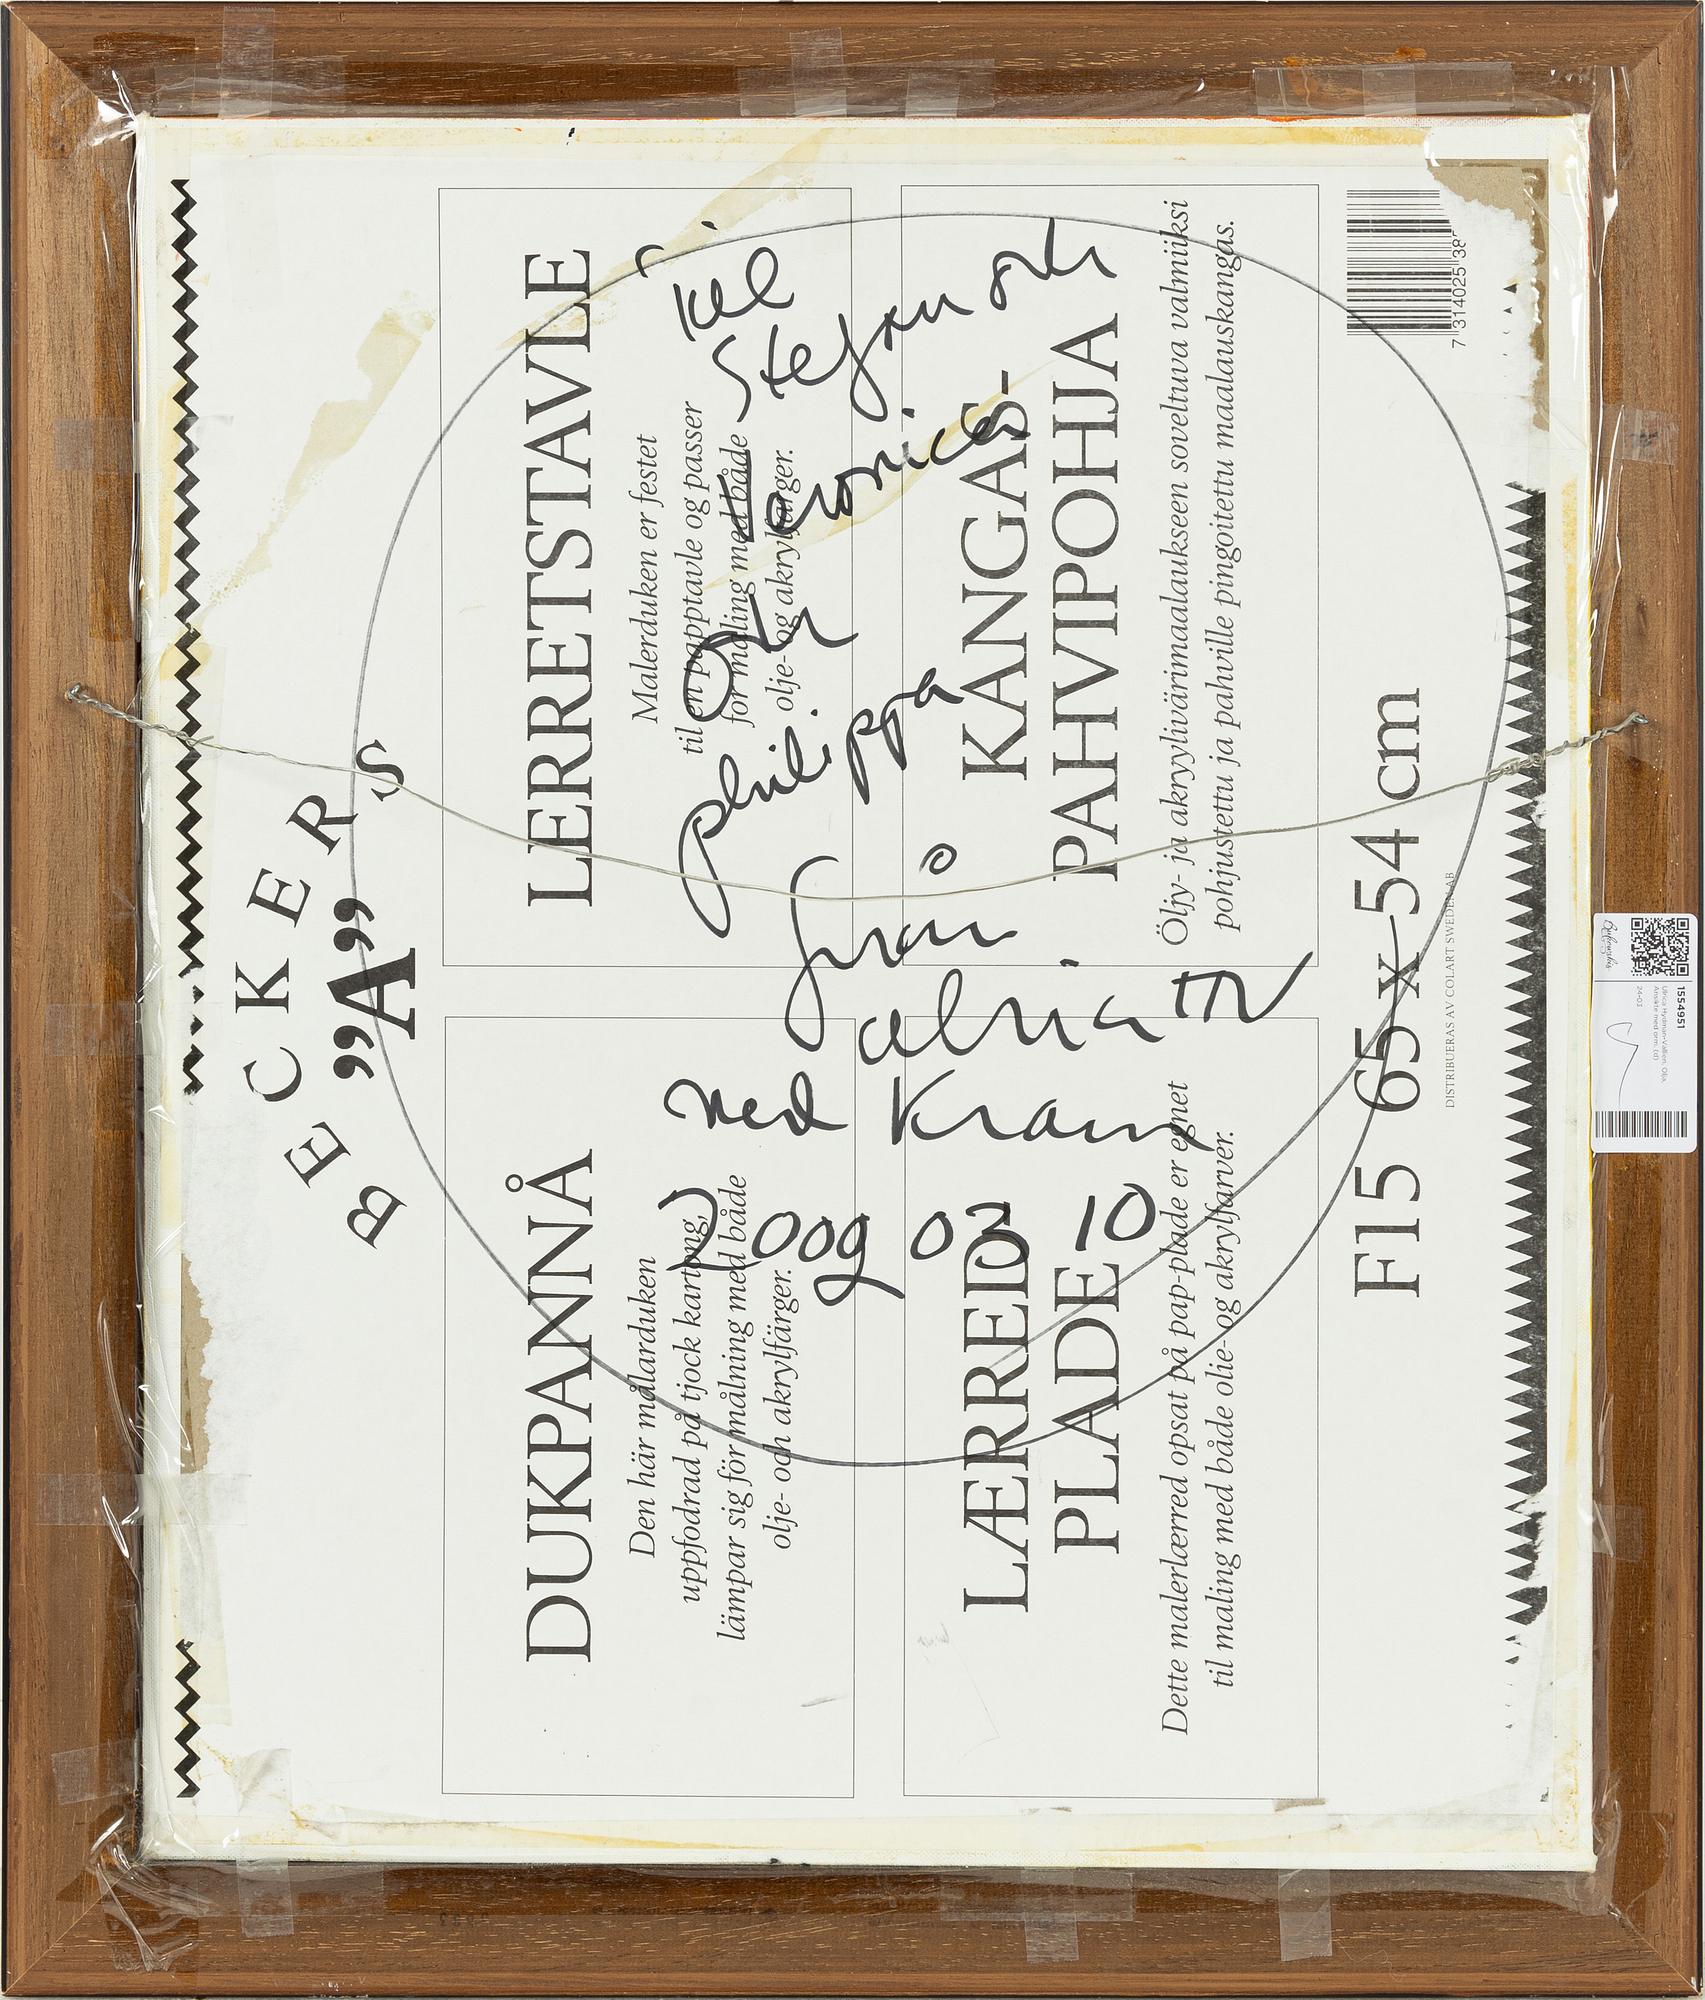 BECKERS
”A”
DUKPANNÅ
Den här målarduken
uppfodrad på tjock kartong,
lämpar sig för målning med både
olje- och akrylfärger.
LERRETSTAVLE
Malerduken er festet
til en papptavle og passer
for maling med både
olje- og akrylfarger.
LÆRRED
PLADE
Dette malerlærred opsat på pap-plade er egnet
til maling med både olie- og akrylfarver.
KANGAS-
PAHVIPOHJA
Öljy- ja akryylivärimaalaukseen soveltuva valmiiksi
pohjustettu ja pahville pingoitettu maalauskangas.
F15 65 x 54 cm
DISTRIBUERAS AV COLART SWEDEN AB
7 314025 38
Till
Stefan och
Veronica
Och
philippa
från
Ulrica HV
med Kram
2009 02 10
Bukowskis
1554951
Ulrica Hydman-Vallien, Olja,
Ansikte med orm, (d)
24-03